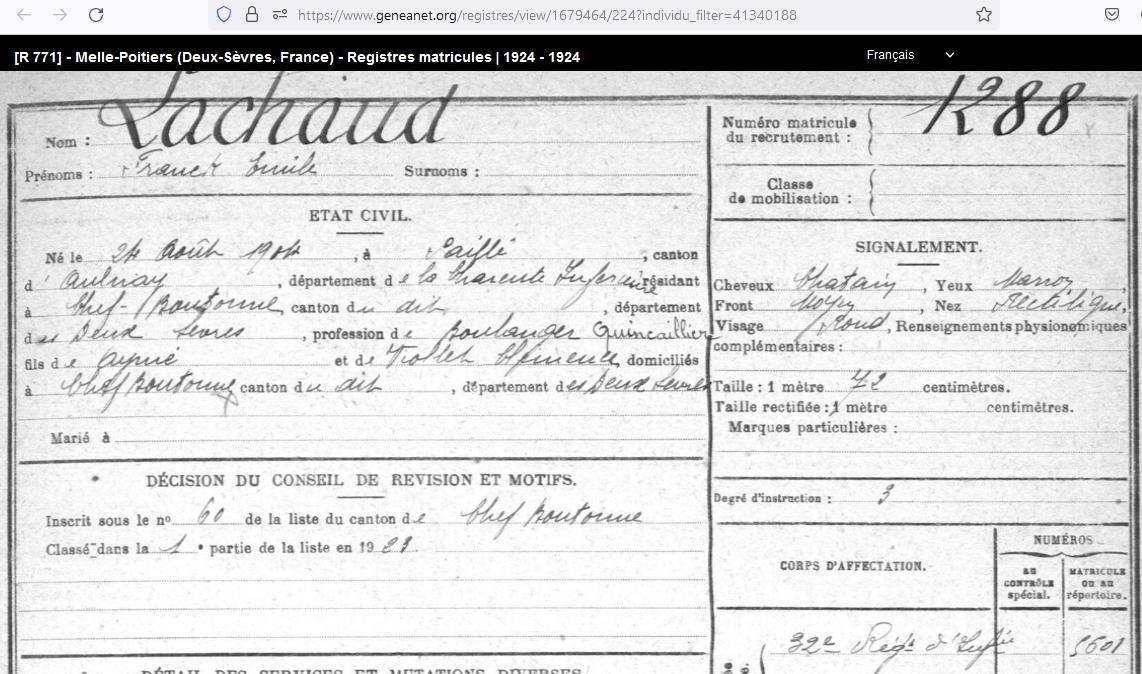 https://www.geneanet.org/registres/view/1679464/224?individu_filter=41340188
[R 771] - Melle-Poitiers (Deux-Sèvres, France) - Registres matricules | 1924 - 1924
Français
Nom : Lachaud
Prénoms : Franck Emile Surnoms :
ETAT CIVIL.
Né le 24 Août 1904, à Saillé, canton
d' Aulnay, département de la Charente Inférieure résidant
à Chef-Boutonne, canton du dit, département
des Deux Sèvres, profession de Boulanger Quincaillier
fils de Aymé et de Trollet Clémence, domiciliés
à Chef Boutonne canton du dit, département des Deux Sèvres
Marié à
DÉCISION DU CONSEIL DE REVISION ET MOTIFS.
Inscrit sous le no 60 de la liste du canton de Chef Boutonne
Classé dans la 1e partie de la liste en 19
DÉTAIL DES SERVICES ET MUTATIONS DIVERSES
Numéro matricule du recrutement : 1288
Classe de mobilisation :
SIGNALEMENT.
Cheveux Chatain, Yeux Marron,
Front Moyen Nez Rectiligne,
Visage Rond, Renseignements physionomiques
complémentaires :
Taille : 1 mètre 72 centimètres.
Taille rectifiée : 1 mètre centimètres.
Marques particulières :
Degré d'instruction : 3
CORPS D'AFFECTATION.
NUMÉROS
AU CONTRÔLE spécial.
MATRICULE OU AU répertoire.
32e Régt d'Infie 5601